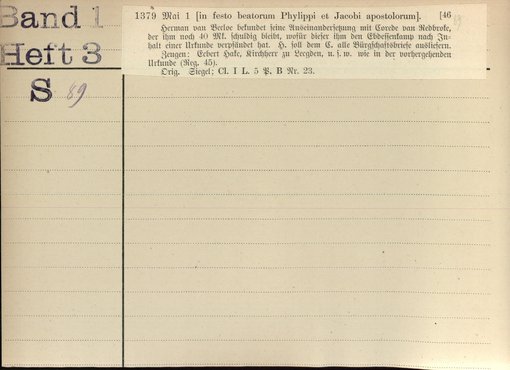 Band 1
Heft 3
S 89
1379 Mai 1 [in festo beatorum Phylippi et Jacobi apostolorum]. [46
Herman van Berloe bekundet seine Auseinandersetzung mit Corede van Redbroke,
der ihm noch 40 Mk. schuldig bleibt, wofür dieser ihm den Ebbesenkamp nach In-
halt einer Urkunde verpfändet hat. H. soll dem C. alle Bürgschaftsbriefe ausliefern.
Zeugen: Ecbert Hake, Kirchherr zu Leegden, u. s. w. wie in der vorhergehenden
Urkunde (Reg. 45).
Orig. Siegel; Cl. I L. 5 P. B Nr. 23.